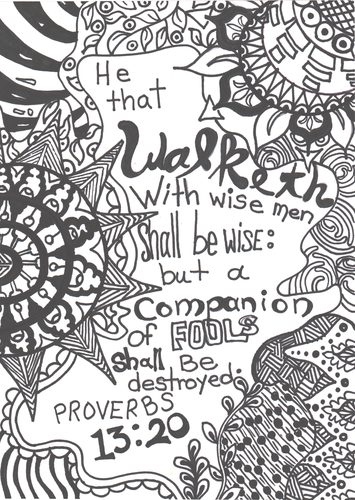 He
that
Walketh
With wise men
Shall be wise:
but a
Companion
of FOOLS
Shall Be
destroyed.
PROVERBS
13:20